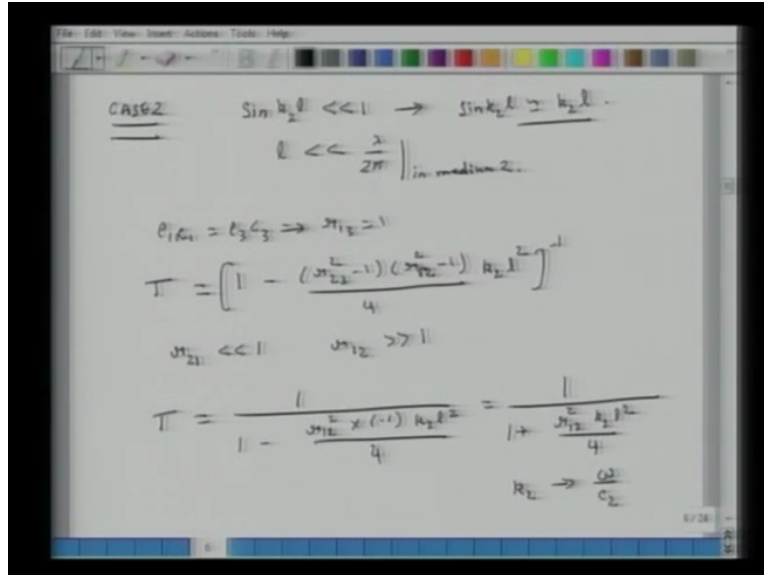 File Edit View Insert Actions Tools Help
CASE2 Sin k₂l << 1 → sin k₂l ≃ k₂l .
l << λ/2π | in medium 2.
= ρ₃c₃ ⇒ r₁₃ = 1
T = [1 - (r₂₁² -1) (r₁₂² -1) / 4 k₂l²]⁻¹
r₂₁ << 1 r₁₂ >> 1
T = 1 / 1 - r₁₂² × (-1) k₂l² / 4 = 1 / 1 + r₁₂² k₂l² / 4
k₂ → ω/c₂
6